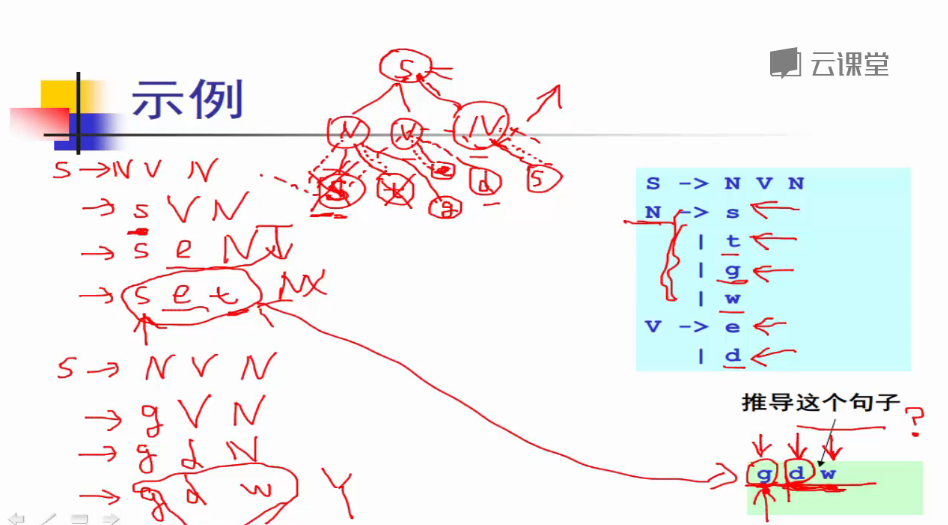 云课堂
示例
S
N V N
s t g e d s
S → N V N
→ s V N
→ s e N
→ s e t N
S → N V N
→ g V N
→ g d N
→ g d w Y
S -> N V N
N -> s
| t
| g
| w
V -> e
| d
推导这个句子
?
g d w